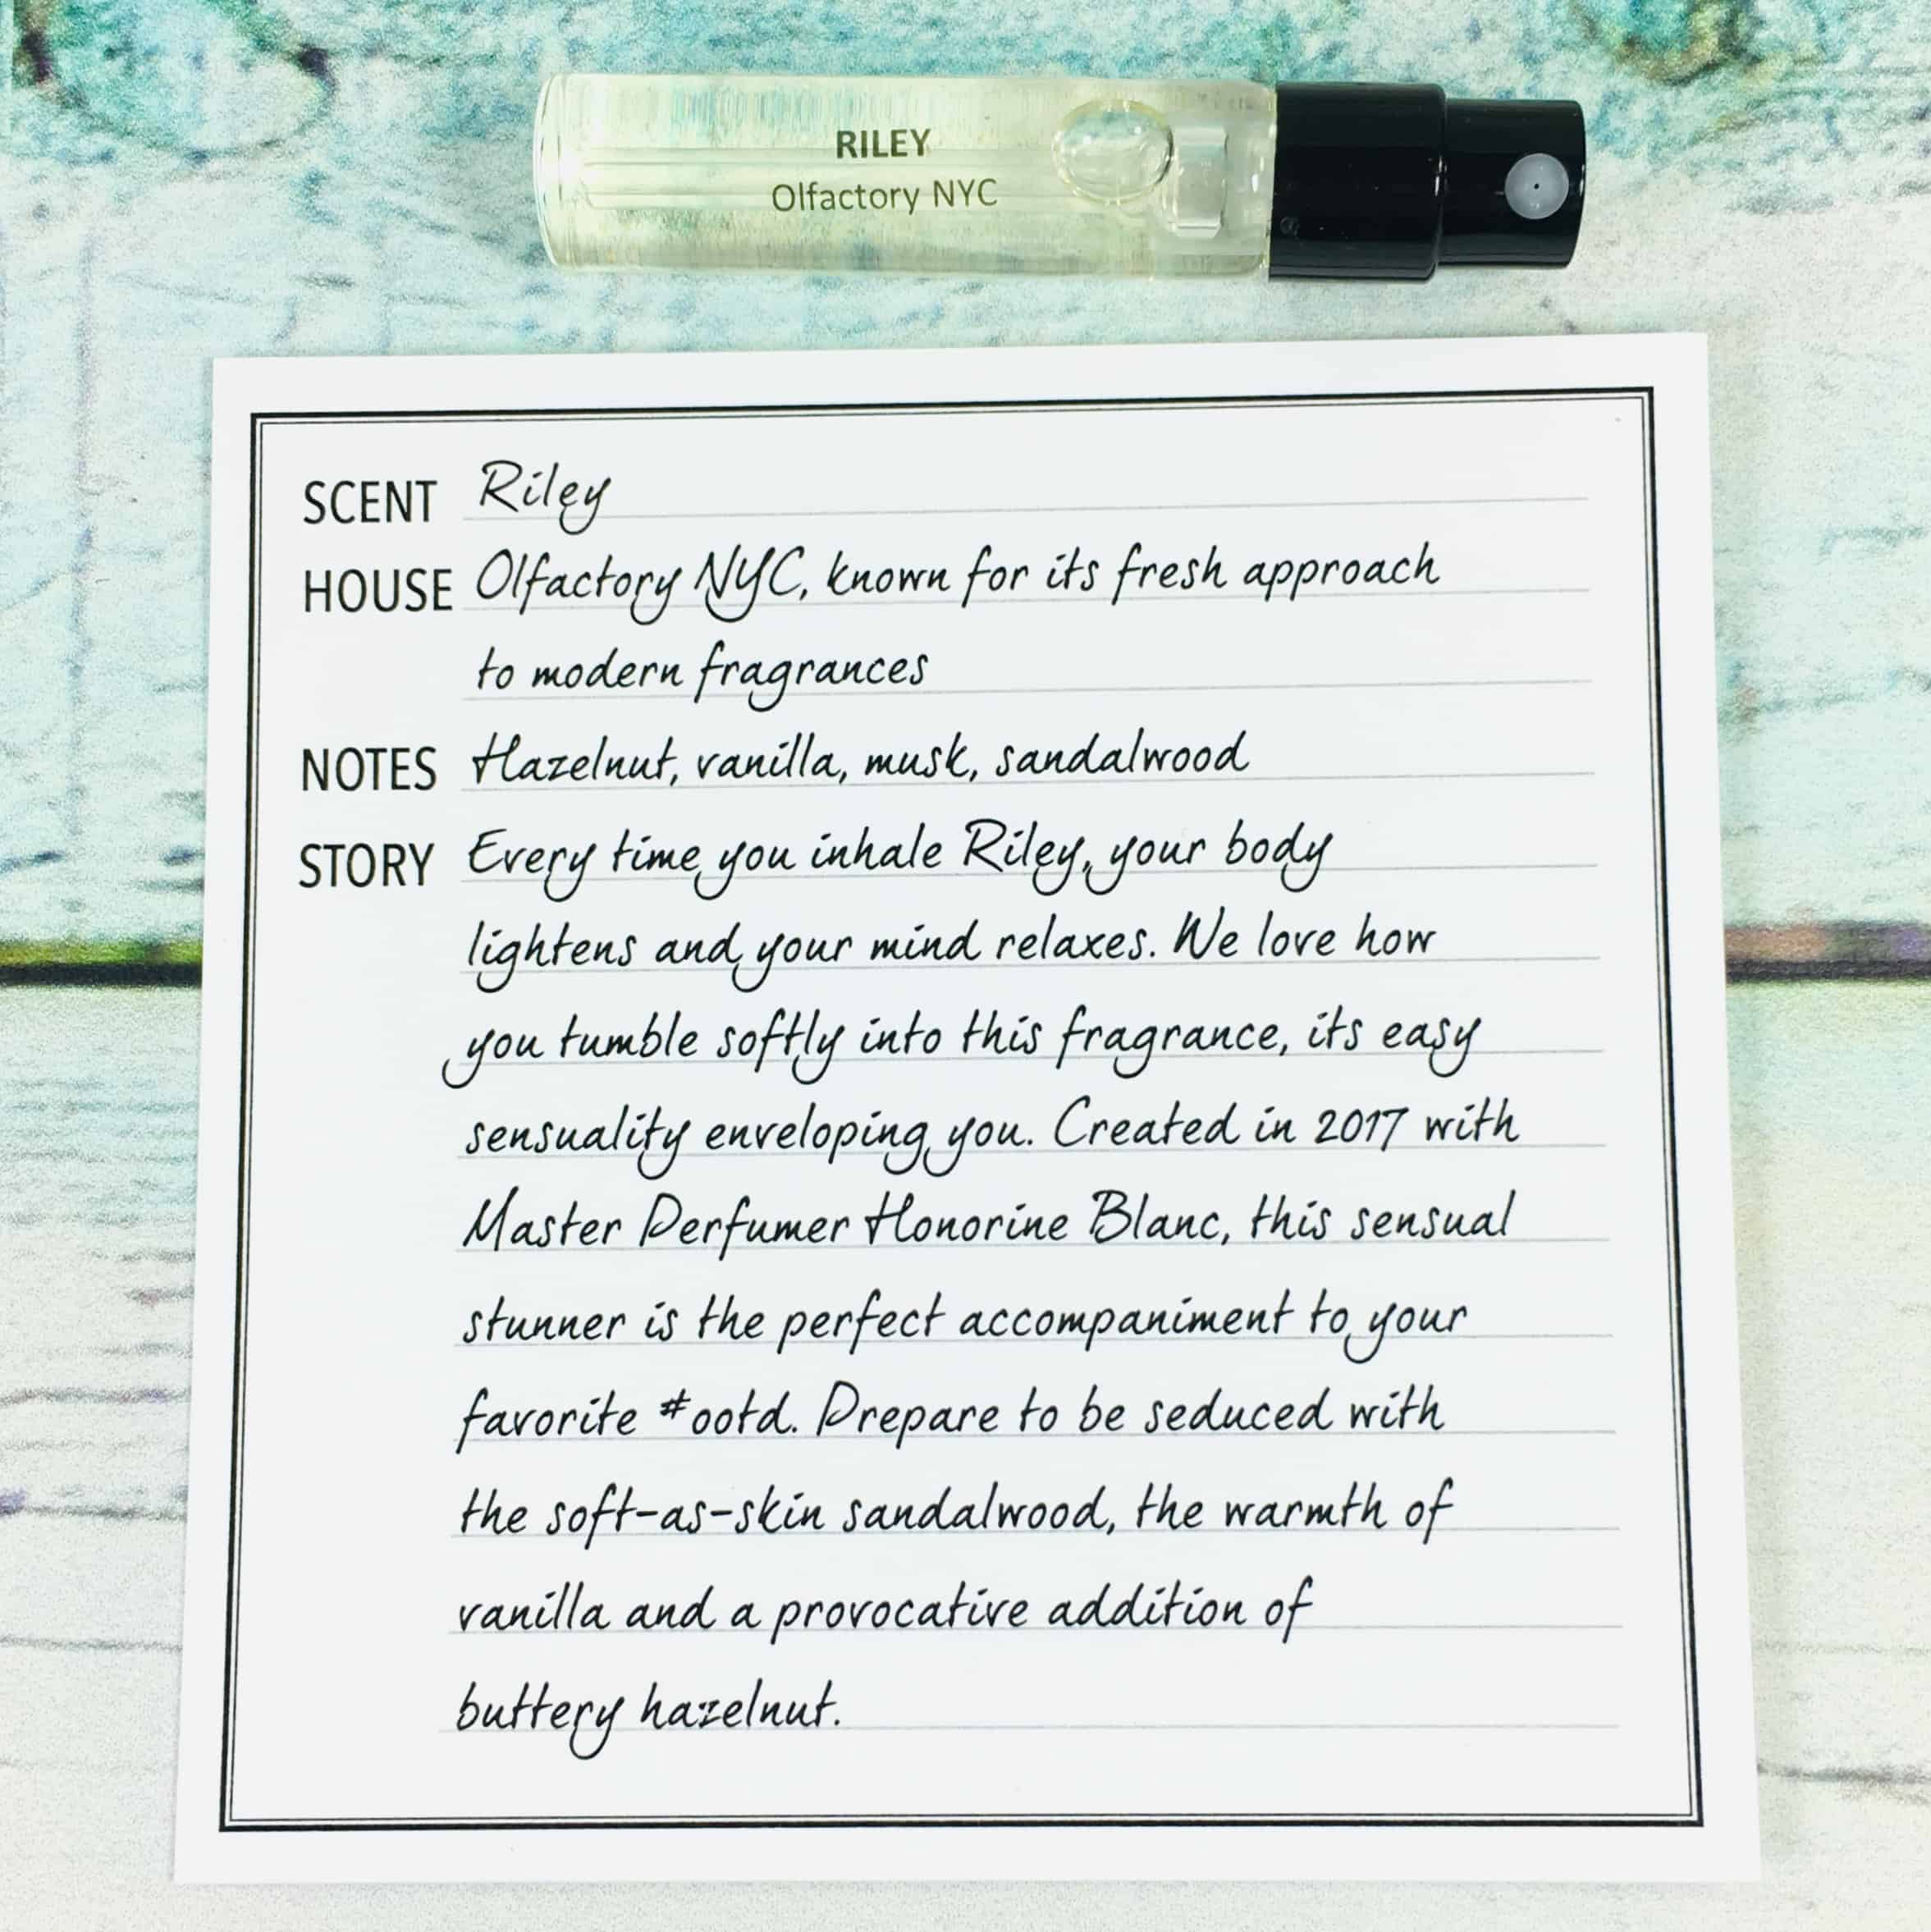 RILEY
Olfactory NYC
SCENT Riley
HOUSE Olfactory NYC, known for its fresh approach
to modern fragrances
NOTES Hazelnut, vanilla, musk, sandalwood
STORY Every time you inhale Riley, your body
lightens and your mind relaxes. We love how
you tumble softly into this fragrance, its easy
sensuality enveloping you. Created in 2017 with
Master Perfumer Honorine Blanc, this sensual
stunner is the perfect accompaniment to your
favorite #ootd. Prepare to be seduced with
the soft-as-skin sandalwood, the warmth of
vanilla and a provocative addition of
buttery hazelnut.